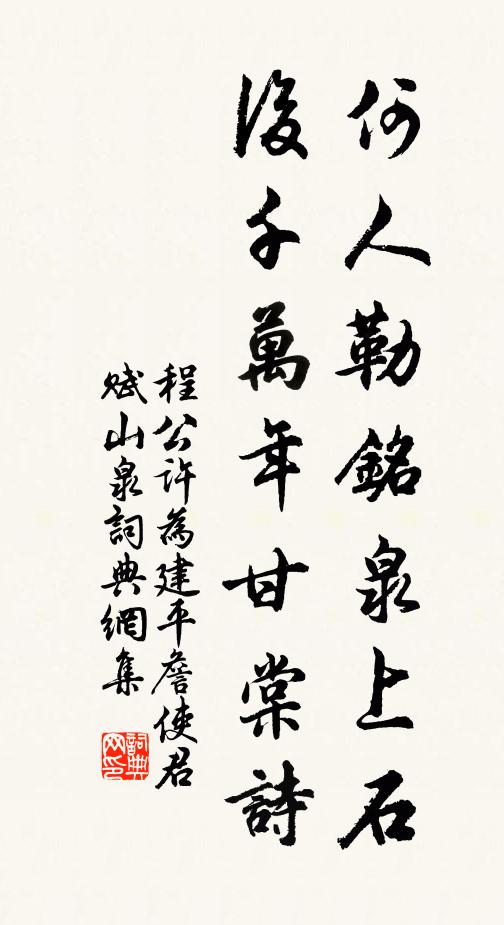 何人勒銘泉上石
後千萬年甘棠詩
程公許為建平詹使君
賦山泉詞典網集
詞典
网印